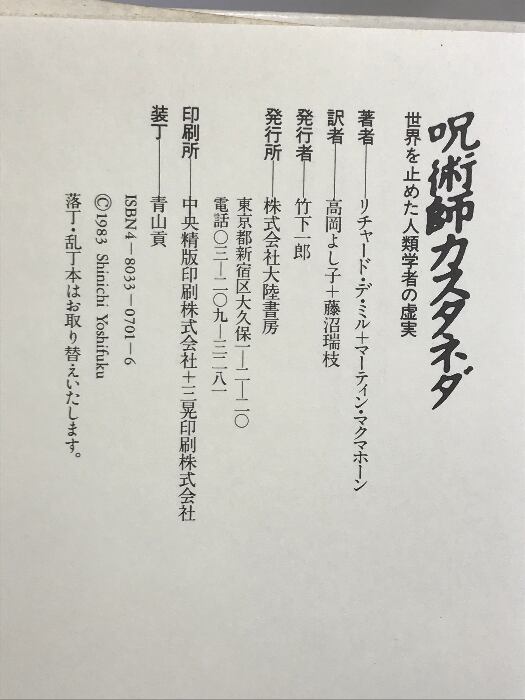 呪術師カスタネダ
世界を止めた人類学者の虚実
著者――リチャード・デ・ミル+マーティン・マクマホーン
訳者――高岡よし子+藤沼瑞枝
発行者――竹下一郎
発行所――株式会社大陸書房
東京都新宿区大久保一―二―二〇
電話〇三―二〇九―三二八一
印刷所――中央精版印刷株式会社+三晃印刷株式会社
装丁――青山貢
ISBN4―8033―0701―6
©1983 Shinichi Yoshifuku
落丁・乱丁本はお取り替えいたします。